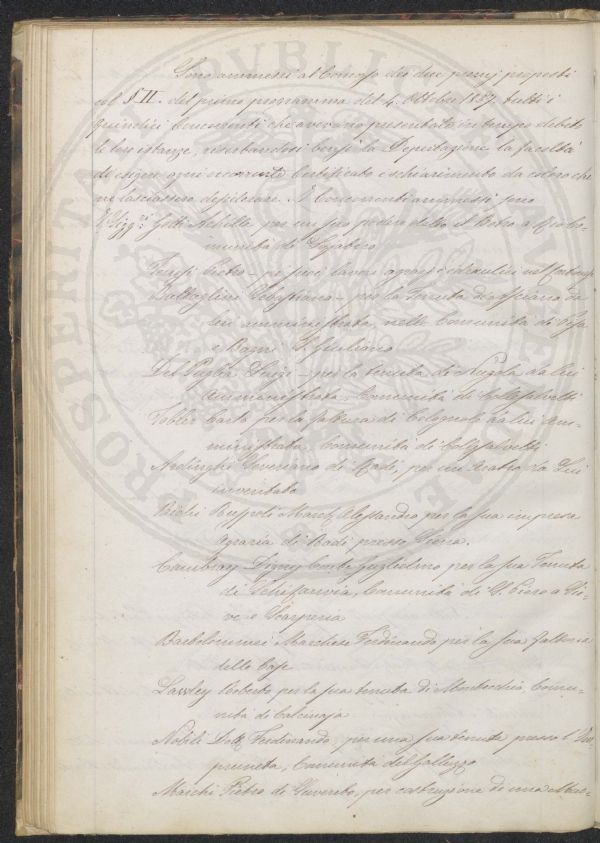 PROSPERITATI PVBLICAE AVGENDAE
Sono ammessi al Concorso dei due premj proposti
al § II. del primo programma del 4. Ottobre 1857 tutti i
quindici Concorrenti che avevano presentato in tempo debito
le loro istanze, riserbandosi bensì la Deputazione la facoltà
di esigere ogni occorrente Certificato e schiarimento da coloro che
ne lasciassero desiderare. I Concorrenti ammessi sono
Gotti Achille per un suo podere detto il Botro a Co-
munità di
Pietro per suoi lavori agrarj e idraulici nel
Battaglini Sebastiano per la Tenuta di Asciano da
lui amministrata, nelle Comunità di Pisa
e Bagni S. Giuliano
Del Puglia Luigi per la tenuta di Nugola da lui
amministrata, Comunità di Collesalvetti
Tobler Carlo per la fattoria di Colognole da lui am-
ministrata, Comunità di Collesalvetti
Ardinghi Severiano di per un aratro da Lui
inventato
Ruspoli March. Alessandro per la sua impresa
agraria di Radi presso Siena.
Cambray Digny Conte Guglielmo per la sua Tenuta
di Schifanoia, Comunità di S. Piero a Sie-
ve e Scarperia
Bartolommei Marchese Ferdinando per la sua fattoria
delle Case
Lawley Roberto per la sua tenuta di Montecchio, Comu-
nità di Calcinaja
Nobili Dott. Ferdinando, per una sua tenuta presso l'Im-
pruneta, Comunità del Galluzzo
Marchi Pietro di per costruzione di una